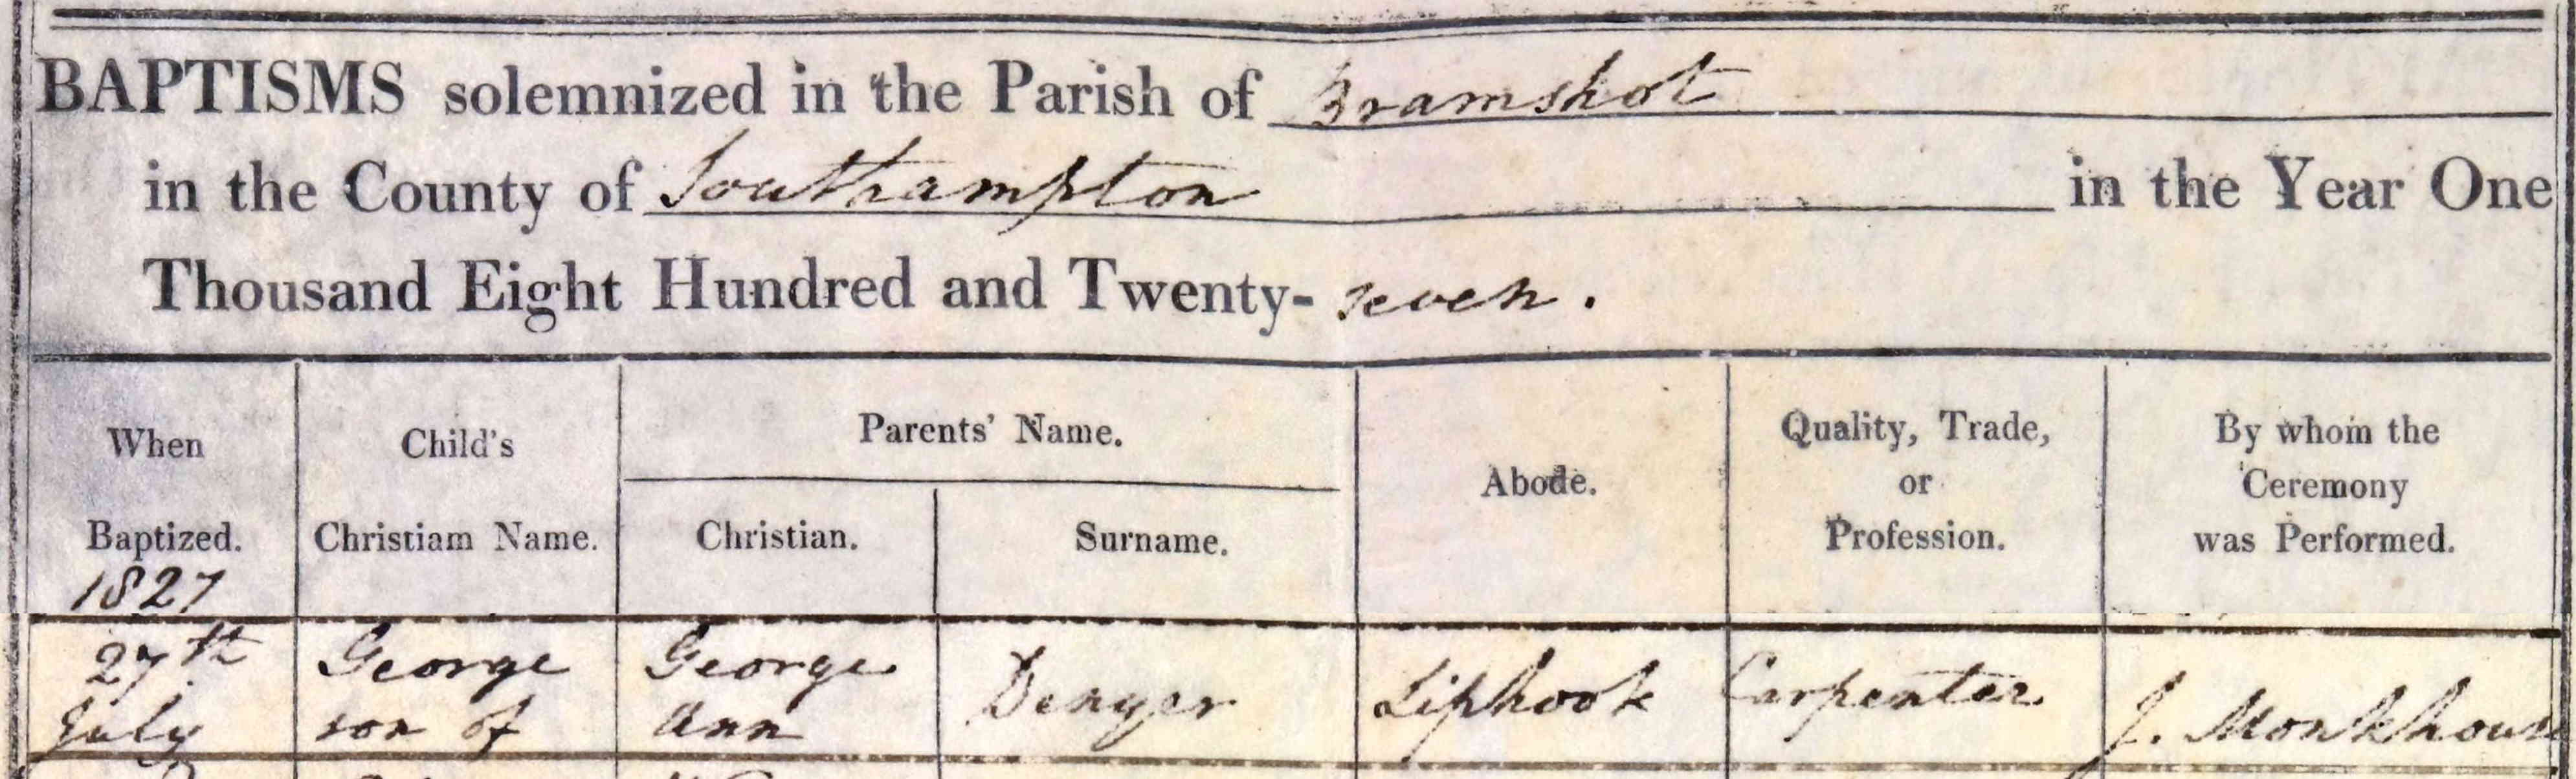 BAPTISMS solemnized in the Parish of Bramshot
in the County of Southampton in the Year One
Thousand Eight Hundred and Twenty-seven.
When Baptized. 1827
Child's Christiam Name.
Parents' Name.
Christian.
Surname.
Abode.
Quality, Trade, or Profession.
By whom the Ceremony was Performed.
27th July
George son of
George Ann
Denyer
Liphook
Carpenter
J. Monkhouse